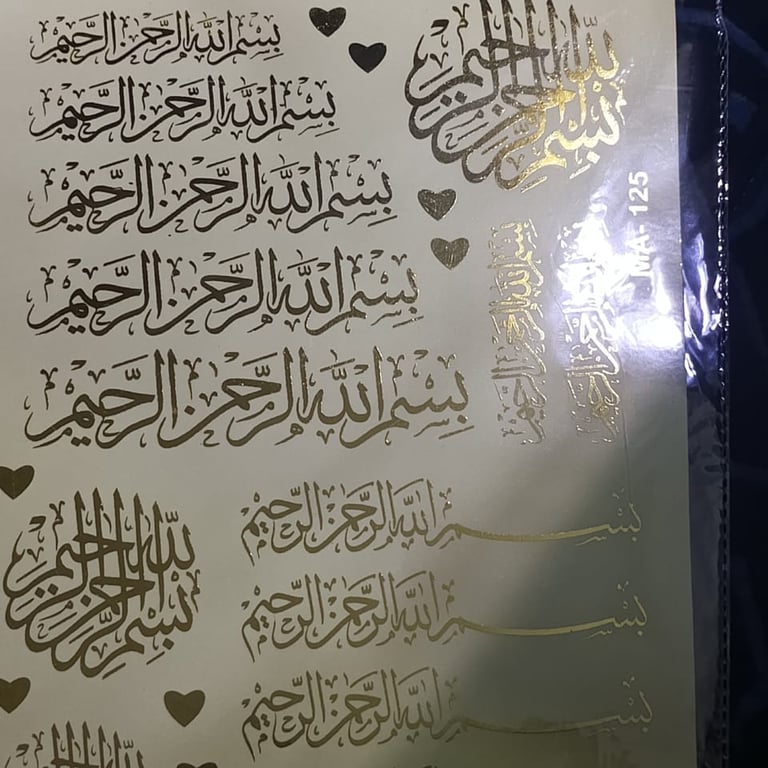 بِسْمِ اللَّهِ الرَّحْمَنِ الرَّحِيمِ
بِسْمِ اللَّهِ الرَّحْمَنِ الرَّحِيمِ
بِسْمِ اللَّهِ الرَّحْمَنِ الرَّحِيمِ
بِسْمِ اللَّهِ الرَّحْمَنِ الرَّحِيمِ
بِسْمِ اللَّهِ الرَّحْمَنِ الرَّحِيمِ
بِسْمِ اللَّهِ الرَّحْمَنِ الرَّحِيمِ
بِسْمِ اللَّهِ الرَّحْمَنِ الرَّحِيمِ
بِسْمِ اللَّهِ الرَّحْمَنِ الرَّحِيمِ
MA- 125
بِسْمِ اللَّهِ الرَّحْمَنِ الرَّحِيمِ
بِسْمِ اللَّهِ الرَّحْمَنِ الرَّحِيمِ
بِسْمِ اللَّهِ الرَّحْمَنِ الرَّحِيمِ
بِسْمِ اللَّهِ الرَّحْمَنِ الرَّحِيمِ